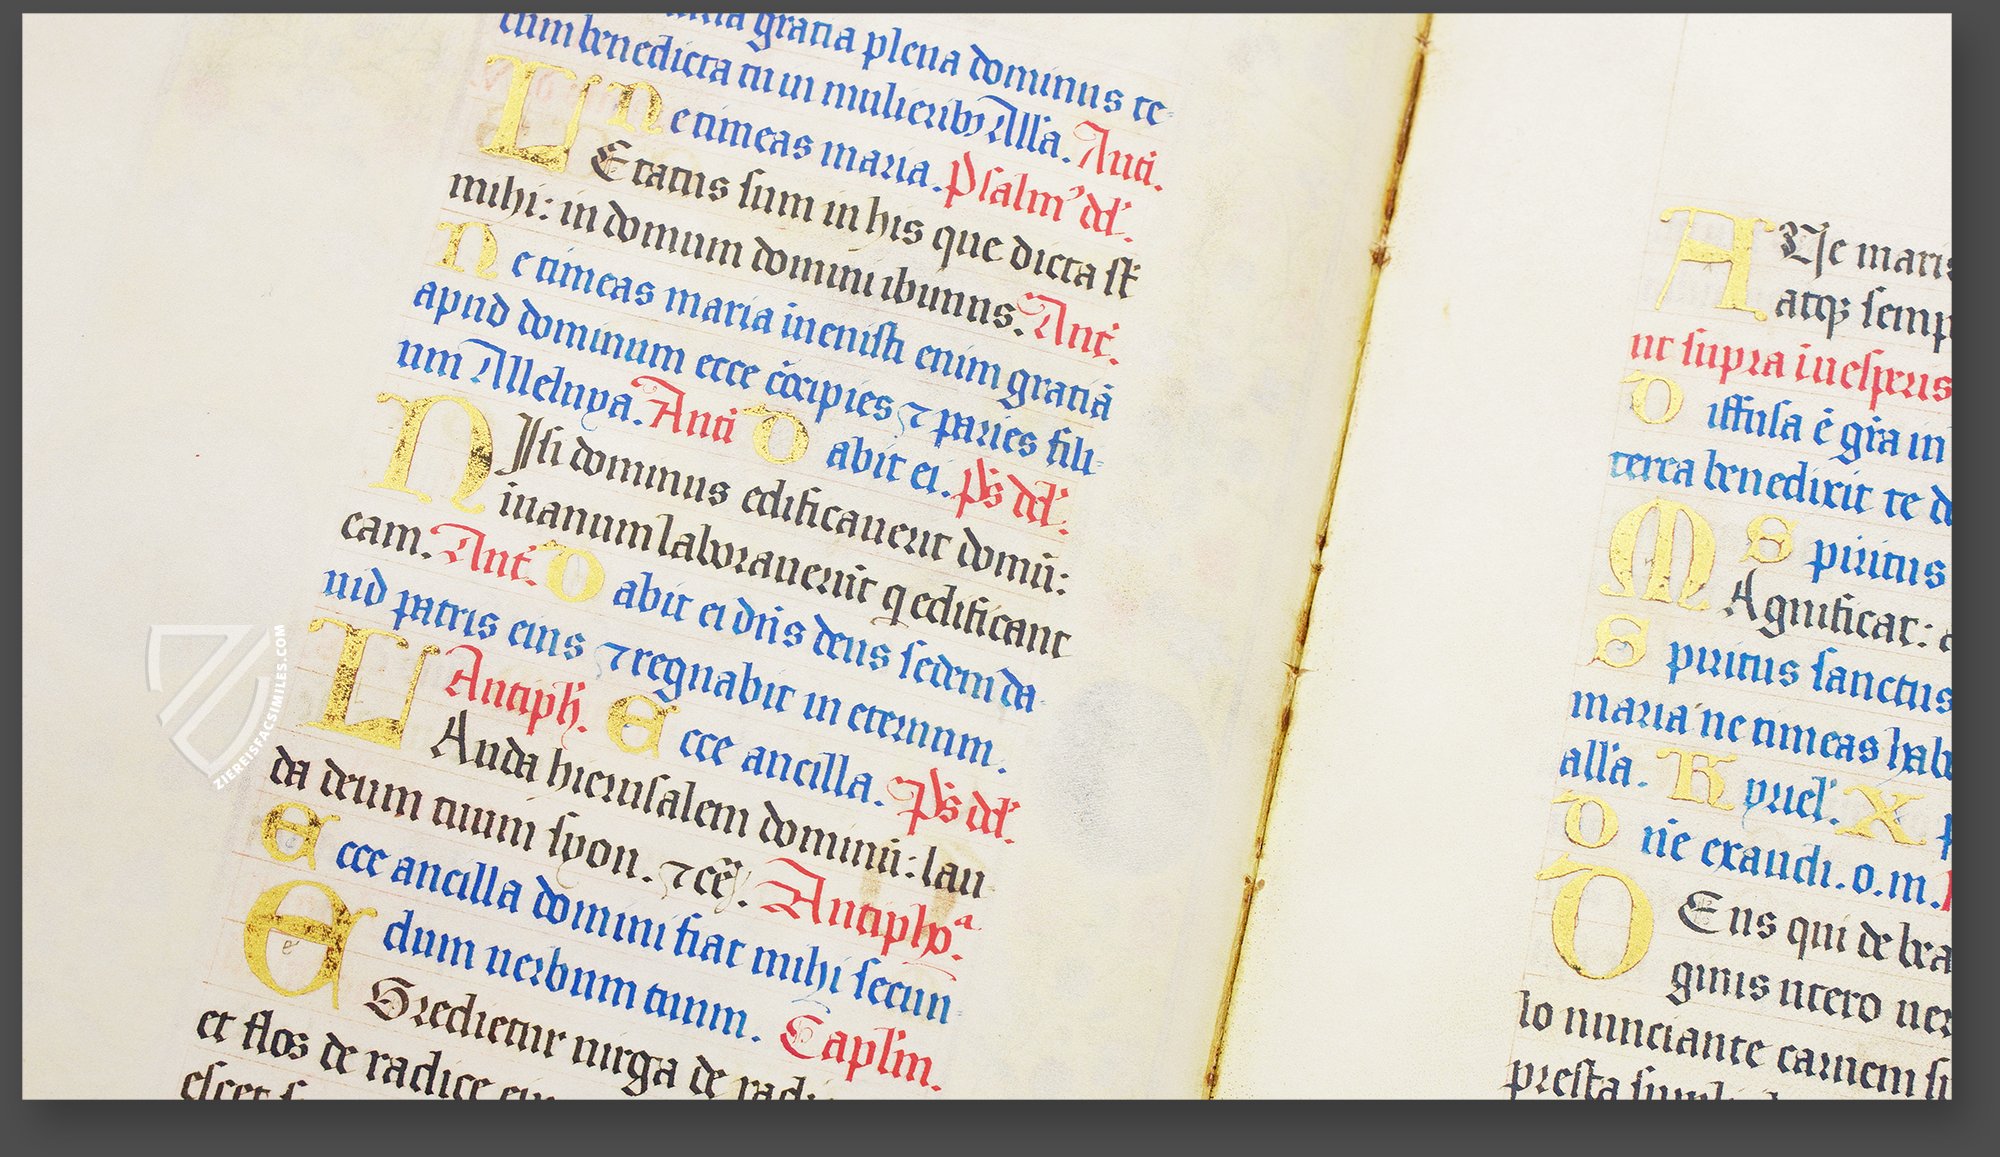 maria gratia plena dominus te-
cum benedicta tu in mulierib' All'a. Anti.
Ne timeas maria. Psalm' dd'.
LEtatus sum in his que dicta st̄
mihi: in domum domini ibimus. Ant'.
Ne timeas maria inuenisti enim gratiā
apud dominum ecce cōcipies ⁊ paries fili-
um Alleluya. Anti Dabit ei. Ps dd'.
NIsi dominus edificauerit domū:
inuanum laborauerūt q edificant
eam. Ant'. Dabit ei dn̄s deus sedem da-
uid patris eius ⁊ regnabit in eternum.
Antiph. Ecce ancilla. Ps dd'.
LAuda hierusalem dominū: lau
da deum tuum syon. ⁊ cē. Antipho.ᵃ
Ecce ancilla domini fiat mihi secun-
dum uerbum tuum. Capl'm.
EGredietur uirga de radi
et flos de radice eiu
AUe maris
atq; semp
ut supra in uesperis
Diffusa ē gr̄a in
terea benedixit te d
Spiritus
MAgnificat: a
Spiritus sanctus
maria ne timeas hab
all'a. Kyriel'. X p
Dn̄e exaudi. o. m.
DEus qui de bea
ginis utero uer
lo nunciante carnem su
presta
ZIEREISFACSIMILES.COM